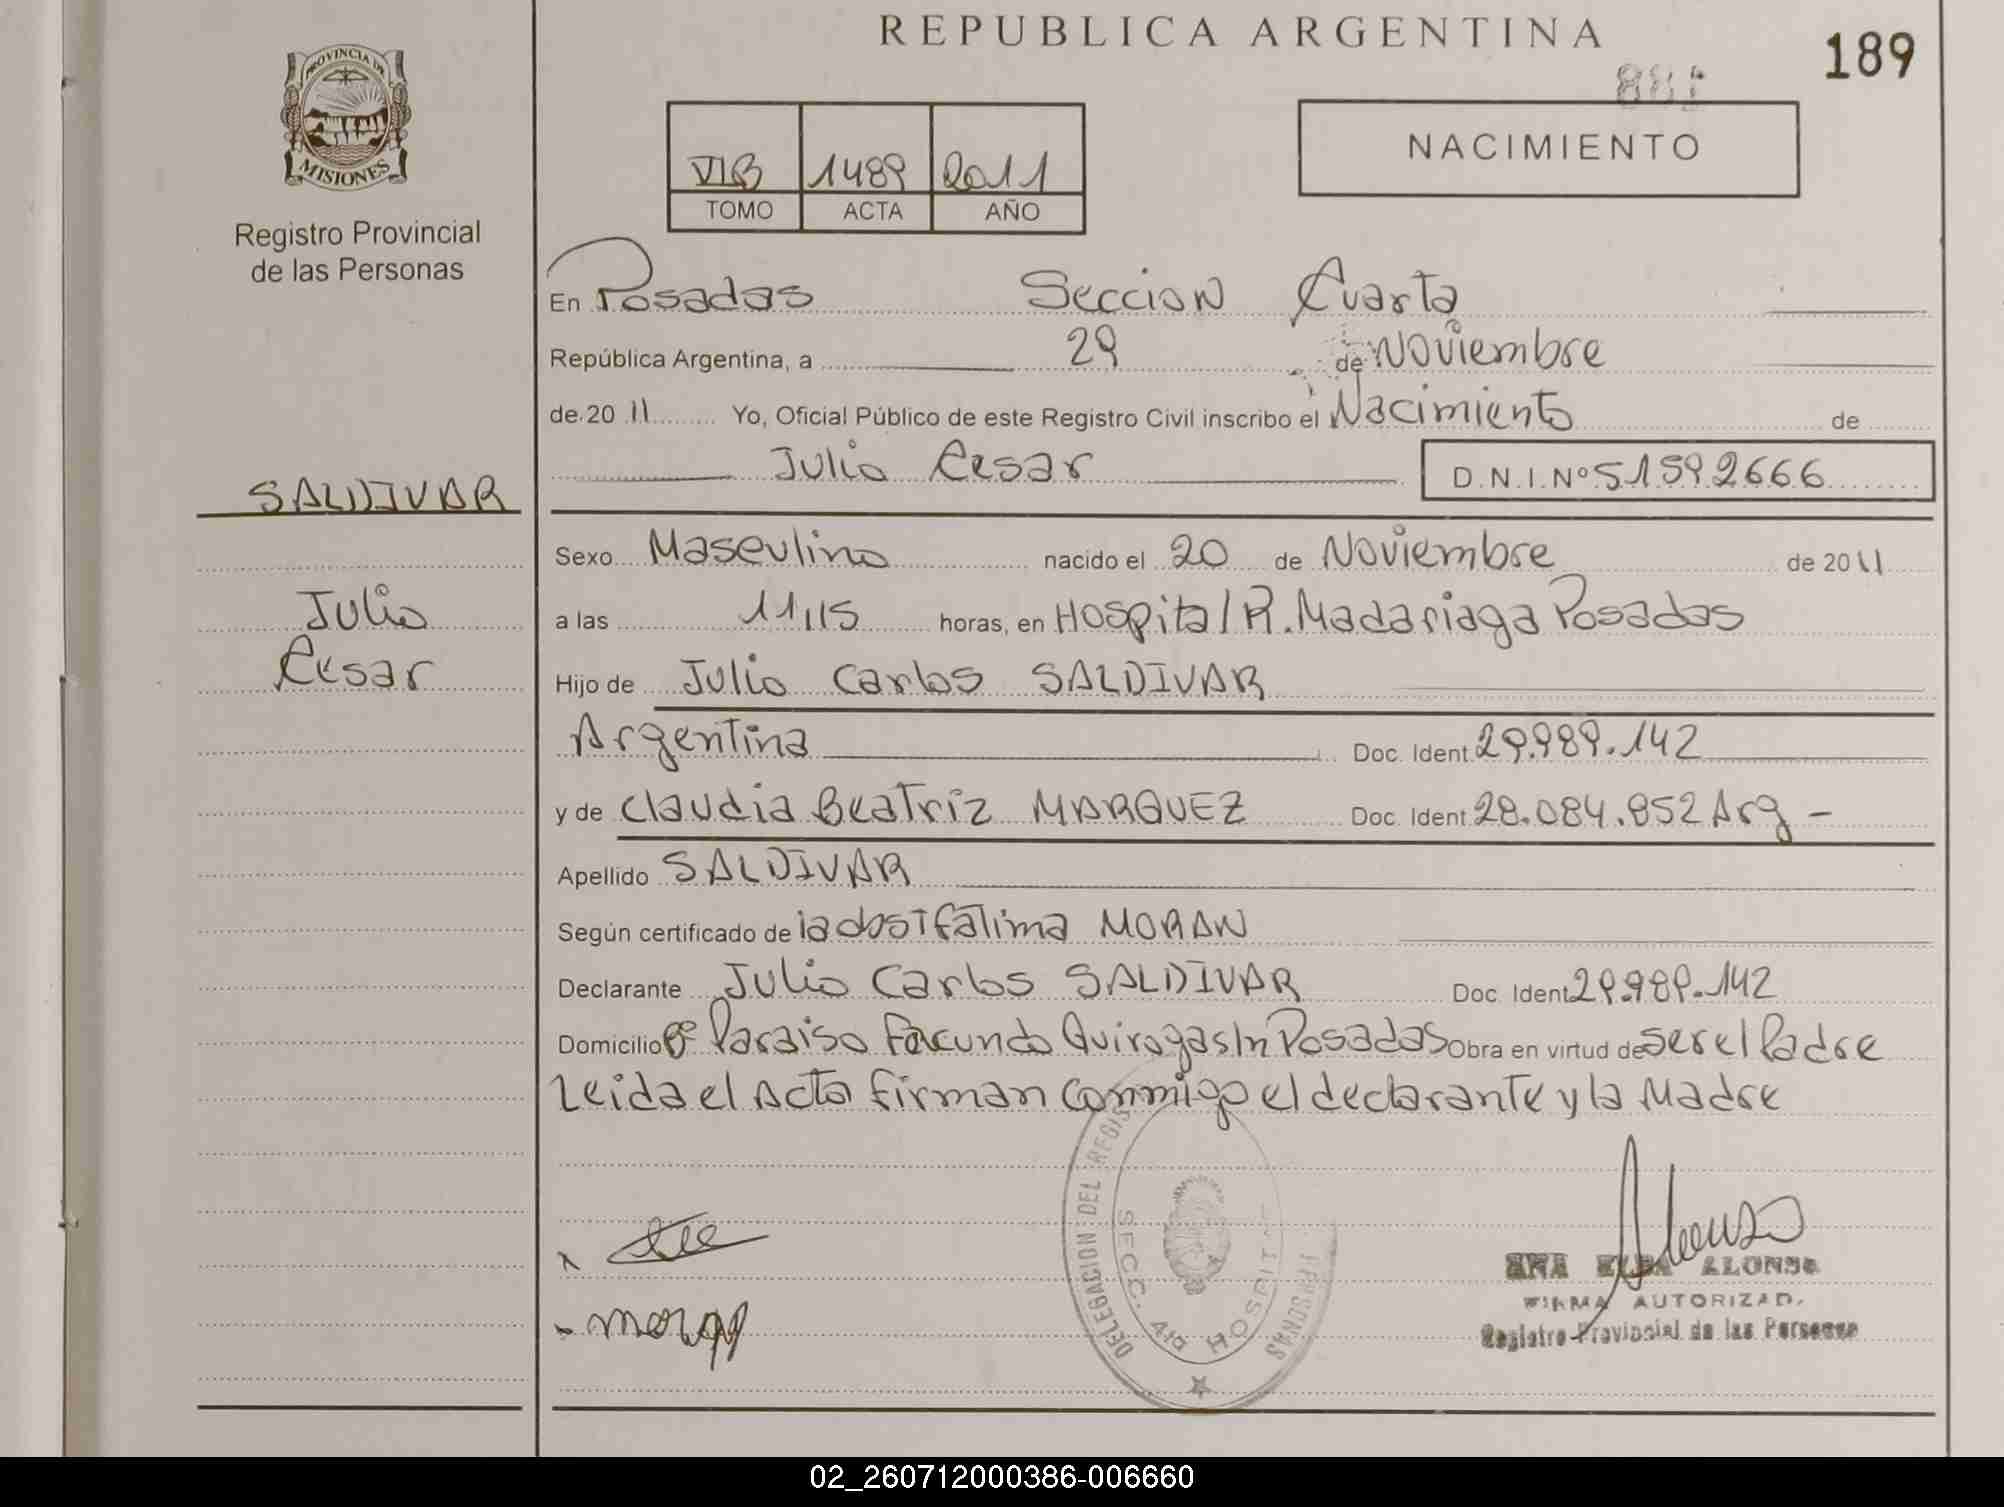 REPUBLICA ARGENTINA
189
188
PROVINCIA DE
MISIONES
Registro Provincial
de las Personas
NACIMIENTO
VIB 1489 2011
TOMO ACTA AÑO
En Posadas Seccion Cuarta
República Argentina, a 29 de Noviembre
de 20 11 Yo, Oficial Público de este Registro Civil inscribo el Nacimiento de
Julio Cesar D.N.I. Nº 51592666
SALDIVAR
Julio
Cesar
Sexo Masculino nacido el 20 de Noviembre de 20 11
a las 11,15 horas, en Hospital R. Madariaga Posadas
Hijo de Julio Carlos SALDIVAR
Argentina Doc. Ident. 29.989.142
y de Claudia Beatriz MARQUEZ Doc. Ident. 28.084.852 Arg -
Apellido SALDIVAR
Según certificado de la obst fatima MORAN
Declarante Julio Carlos SALDIVAR Doc. Ident 29.989.142
Domicilio Bº Paraiso Facundo Quiroga s/n Posadas Obra en virtud de ser el Padre
Leida el Acta firman conmigo el declarante y la Madre
DELEGACION DEL REGIS PERSONAS
SECC. 4ta HOSPIT
ANA ELBA ALONSO
FIRMA AUTORIZAD.
Registro Provincial de las Personas
02_260712000386-006660